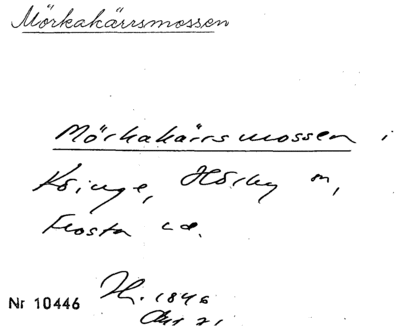 Mörkakärrsmossen
Mörkakärrsmossen i
Köinge, Hörby m,
Frosta
Nr 10446
1846